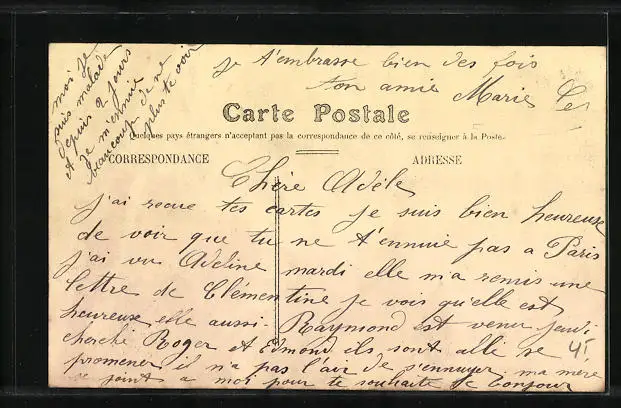 Carte Postale
Quelques pays étrangers n'acceptant pas la correspondance de ce côté, se renseigner à la Poste.
CORRESPONDANCE
ADRESSE
Chère Adèle
j'ai recue tes cartes je suis bien heureuse
de voir que tu ne t'ennuie pas a Paris
j'ai vu Adeline mardi elle m'a remis une
lettre de Clémentine je vois qu'elle est
heureuse elle aussi Raymond est venu jeudi
cherché Roger et Edmond ils sont allé se
promener il n'a pas l'air de s'ennuyer ma mère
se joint a moi pour te souhaite le bonjour
moi je
suis malade
depuis 2 jours
et je m'ennuie
beaucoup de ne
plus te voir
je t'embrasse bien des fois
ton amie
Marie
45